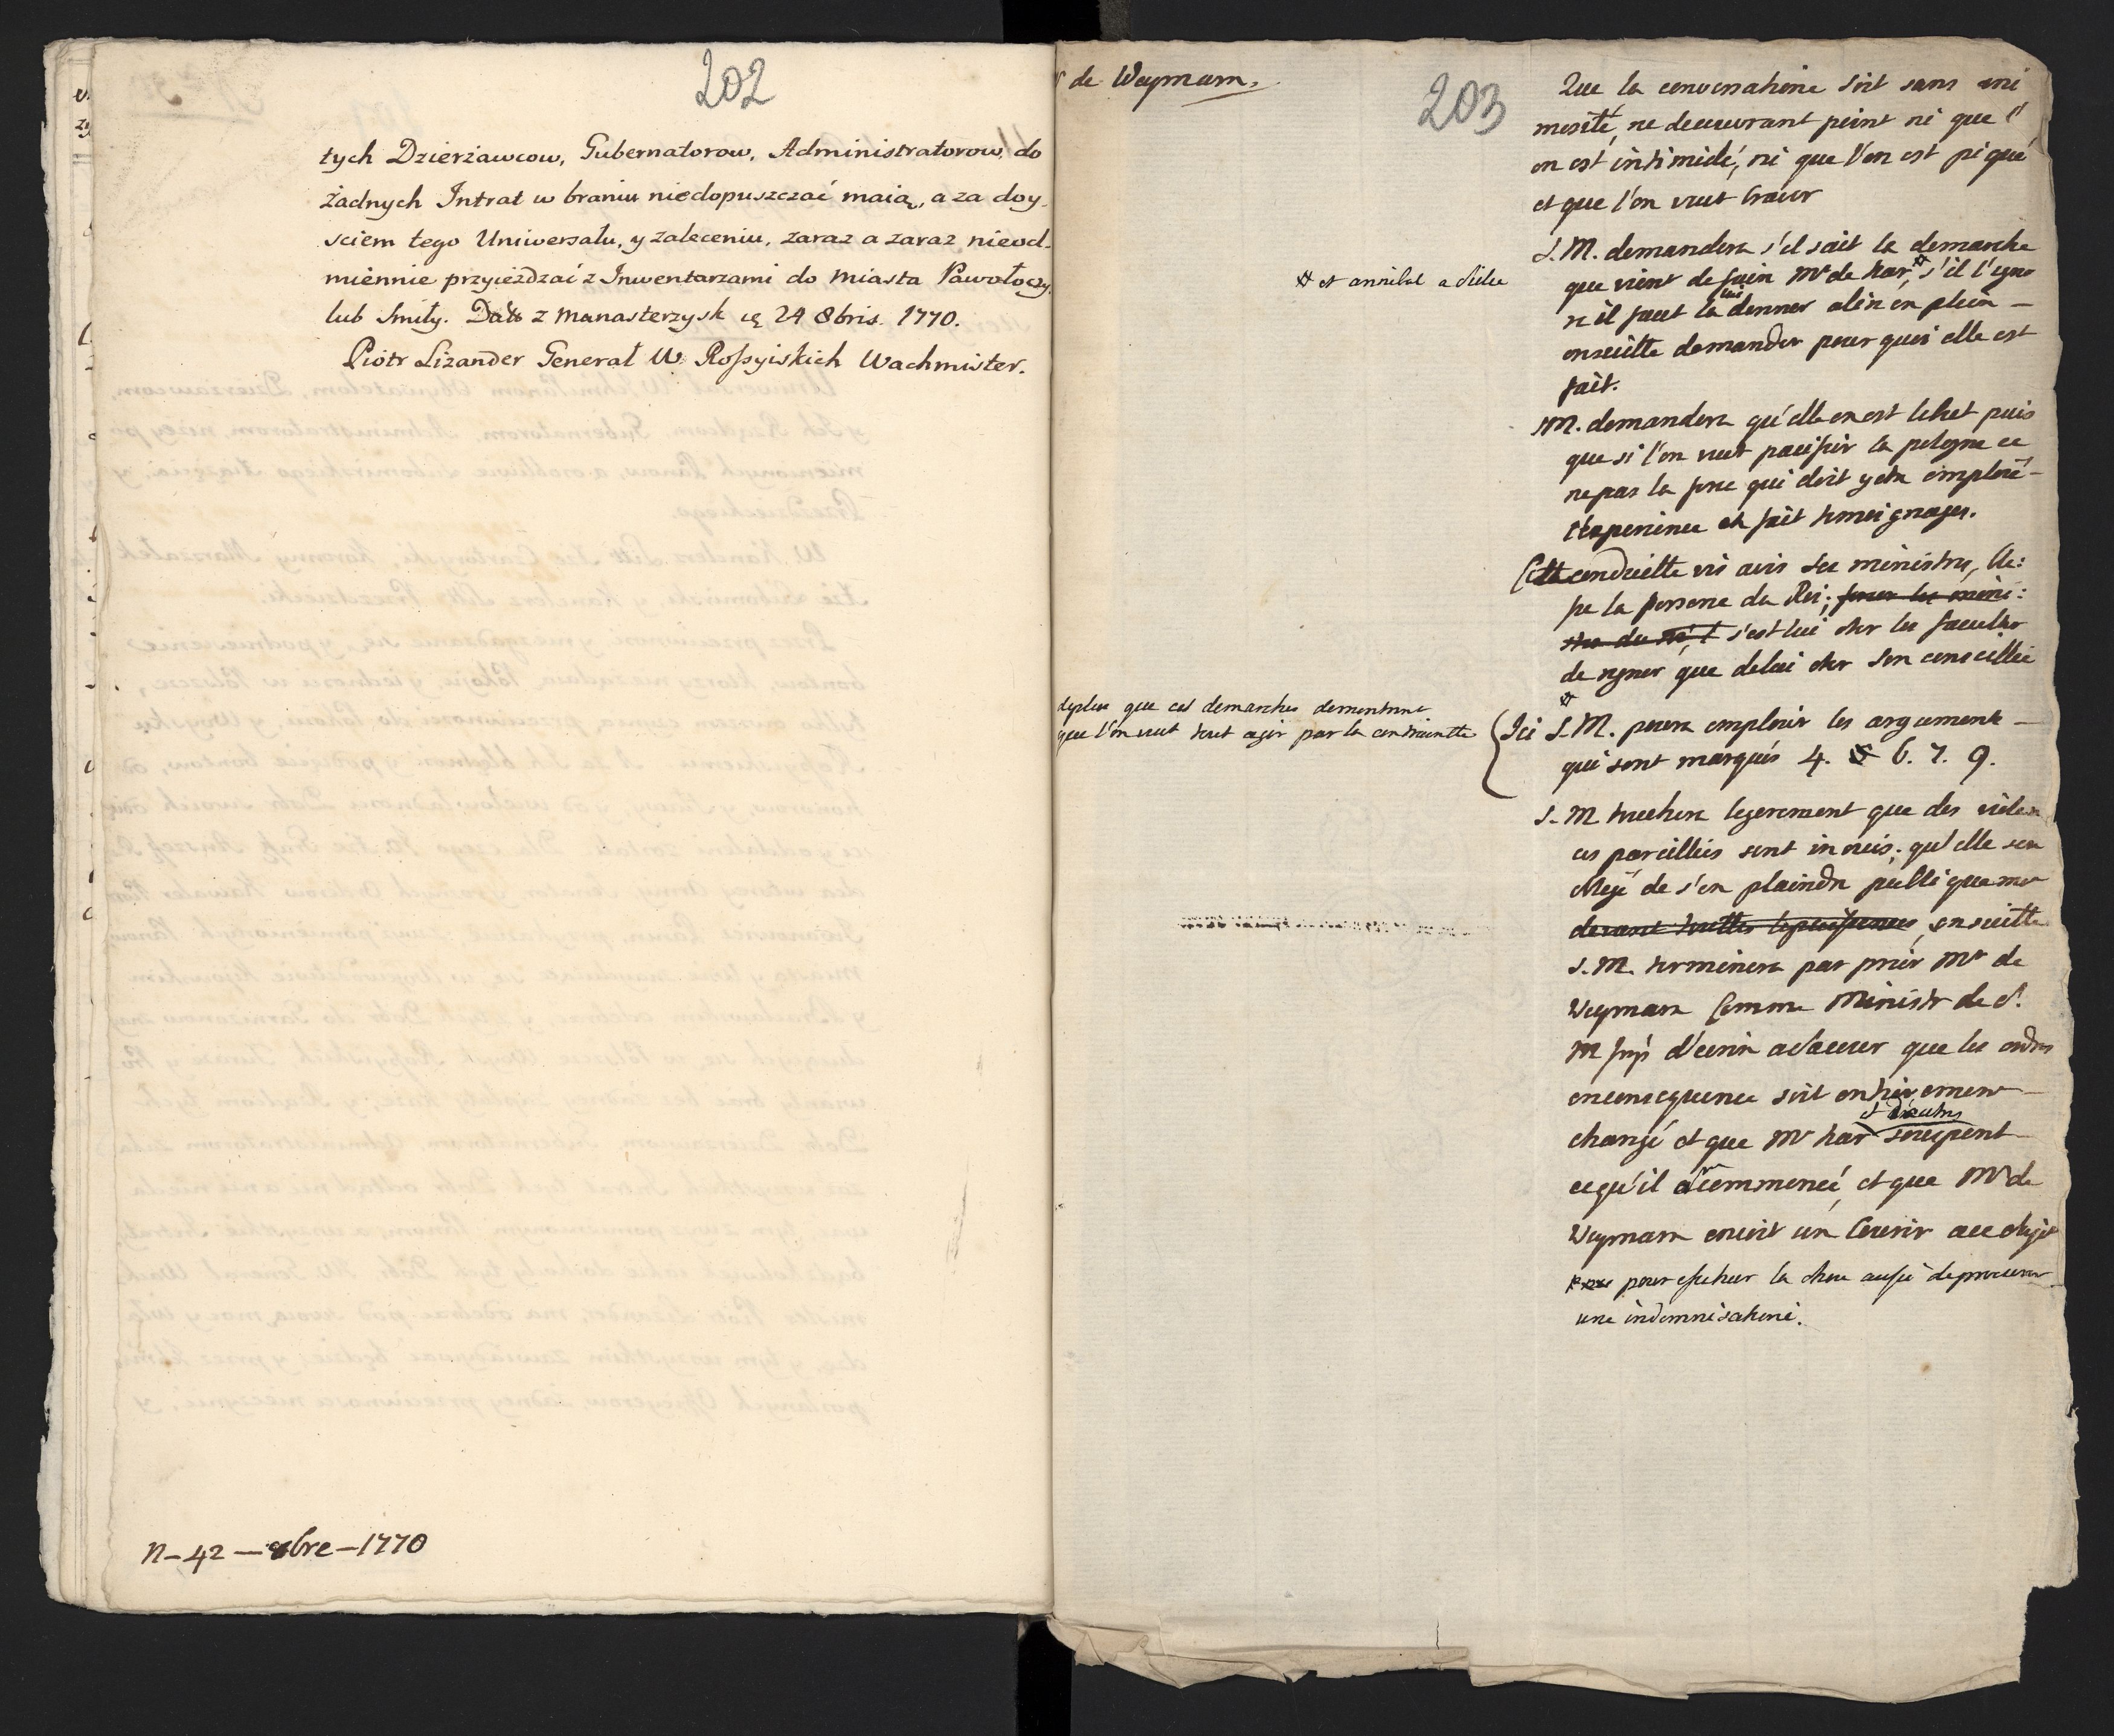 202
tych Dzierżawcow, Gubernatorow, Administratorow, do
żadnych Intrat w braniu niedopuszczać maią, a za doy-
sciem tego Uniwersału, y zaleceniu, zaraz a zaraz nieod-
miennie przyieżdzać z Inwentarzami do Miasta Pawołoczy,
lub Smiły. Datt z Manasterzysk 24 8bris. 1770.
Piotr Lizander Generał W. Roſsyiskich Wachmister.
n-42- -1770
de Weymarn,
203
Que la conversationi soit sans ani
mosité, ne decouvrant point ni que l'
on est intimidé, ni que l'on est piqué
et que l'on veut braver
S.M. demandera s'il sait la demarche
que vient de fair Mr de har, s'il l'igno
re il faut la lui donner alir en plein
ensuitte demander pour quoi elle est
fait.
et annibal a
S.M. demandera qu'elle en est le but puis
que si l'on veut pacifier la pologne ce
n'e pas la force qui doit y etre emploié
l'experience en fait temoignages.
Cette conduitte vis avis ses ministres,
se la personne du Roi; pour les mini:
stres du roi, s'est lui oter les facultes
de regner que de lui oter son conseillie
deplus que ces demarches demontrent
que l'on veut tout agir par la contraintte
Ici S.M. poura emploier les arguments
qui sont marqués 4. 6. 7. 9.
S.M. touchera legerement que des violen
ces pareillies sont inouis; qu'elle sera
obligé de s'en plaindre publiquement
devant touttes les puissances, ensuitte
S.M. terminera par prier Mr de
Weymarn Comme Ministre de S.
M Imp d'ecrir a sa cour que les ordres
en consequence soit entierement
changé et que Mr har et d'autres suspent
ce qu'il a commencé, et que Mr de
Weymarn envoit un Courier a ce objet
pour efectuer la chose aussi de procurer
une indemnisationi.